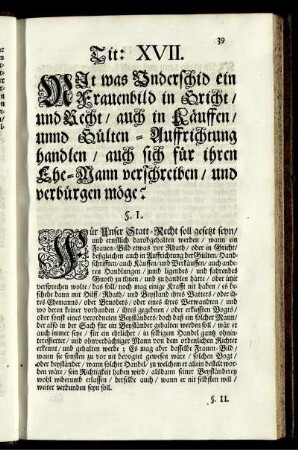 39
Tit: XVII.
Mit was Underschid ein
Frauenbild in Gricht /
und Recht / auch in Käuffen /
unnd Gülten = Auffrichtung
handlen / auch sich für ihren
Ehe=Mann verschreiben / und
verbürgen möge?
§. I.
Für Unser Statt=Recht soll gesetzt seyn /
und ernstlich darobgehalten werden / wann ein
Frauen=Bild etwas vor Rhath / oder in Gricht /
deßgleichen auch in Auffrichtung der Gülten / Hand=
schrifften / auch Käuffen und Verkäuffen / auch an=
deren Handlungen / umb ligendes / und fahrendes
Guoth zu thuen / und zu handlen hätte / oder ichtz
versprechen wolte / das soll / noch mag einige Krafft nit haben / es be=
schehe dann mit Hilff / Rhath / und Beystand ihres Vatters / oder de=
ro Ehemanns / oder Bruoders / oder eines ihres Verwandten / und
wo deren keiner vorhanden / ihres gegebnen / oder erkiessten Vogts /
oder sonst eines verordneten Beyständers doch daß ein solcher Mann /
der also in der Sach für ein Beyständer gehalten werden soll / wär es
auch immer seye / für ein ehrlicher / in selbigem Handel gantz ohnin=
teressierter / und ohnverdächtiger Mann von dem ordenlichen Richter
erkennt / und gehalten werde: Es mag aber dasselbe Frauen=Bild /
wann sie sonsten zu vor nit bevogtet gewesen wäre / solchen Vogt /
oder beyständer / wann solcher Handel / zu welchem er allein bestelt wor=
den wäre / sein Richtigkeit haben wird / alsdann seiner Beyständerey
wohl widerumb erlassen / derselbe auch / wann er nit selbsten will /
weiter verbunden seyn soll.
§. II.